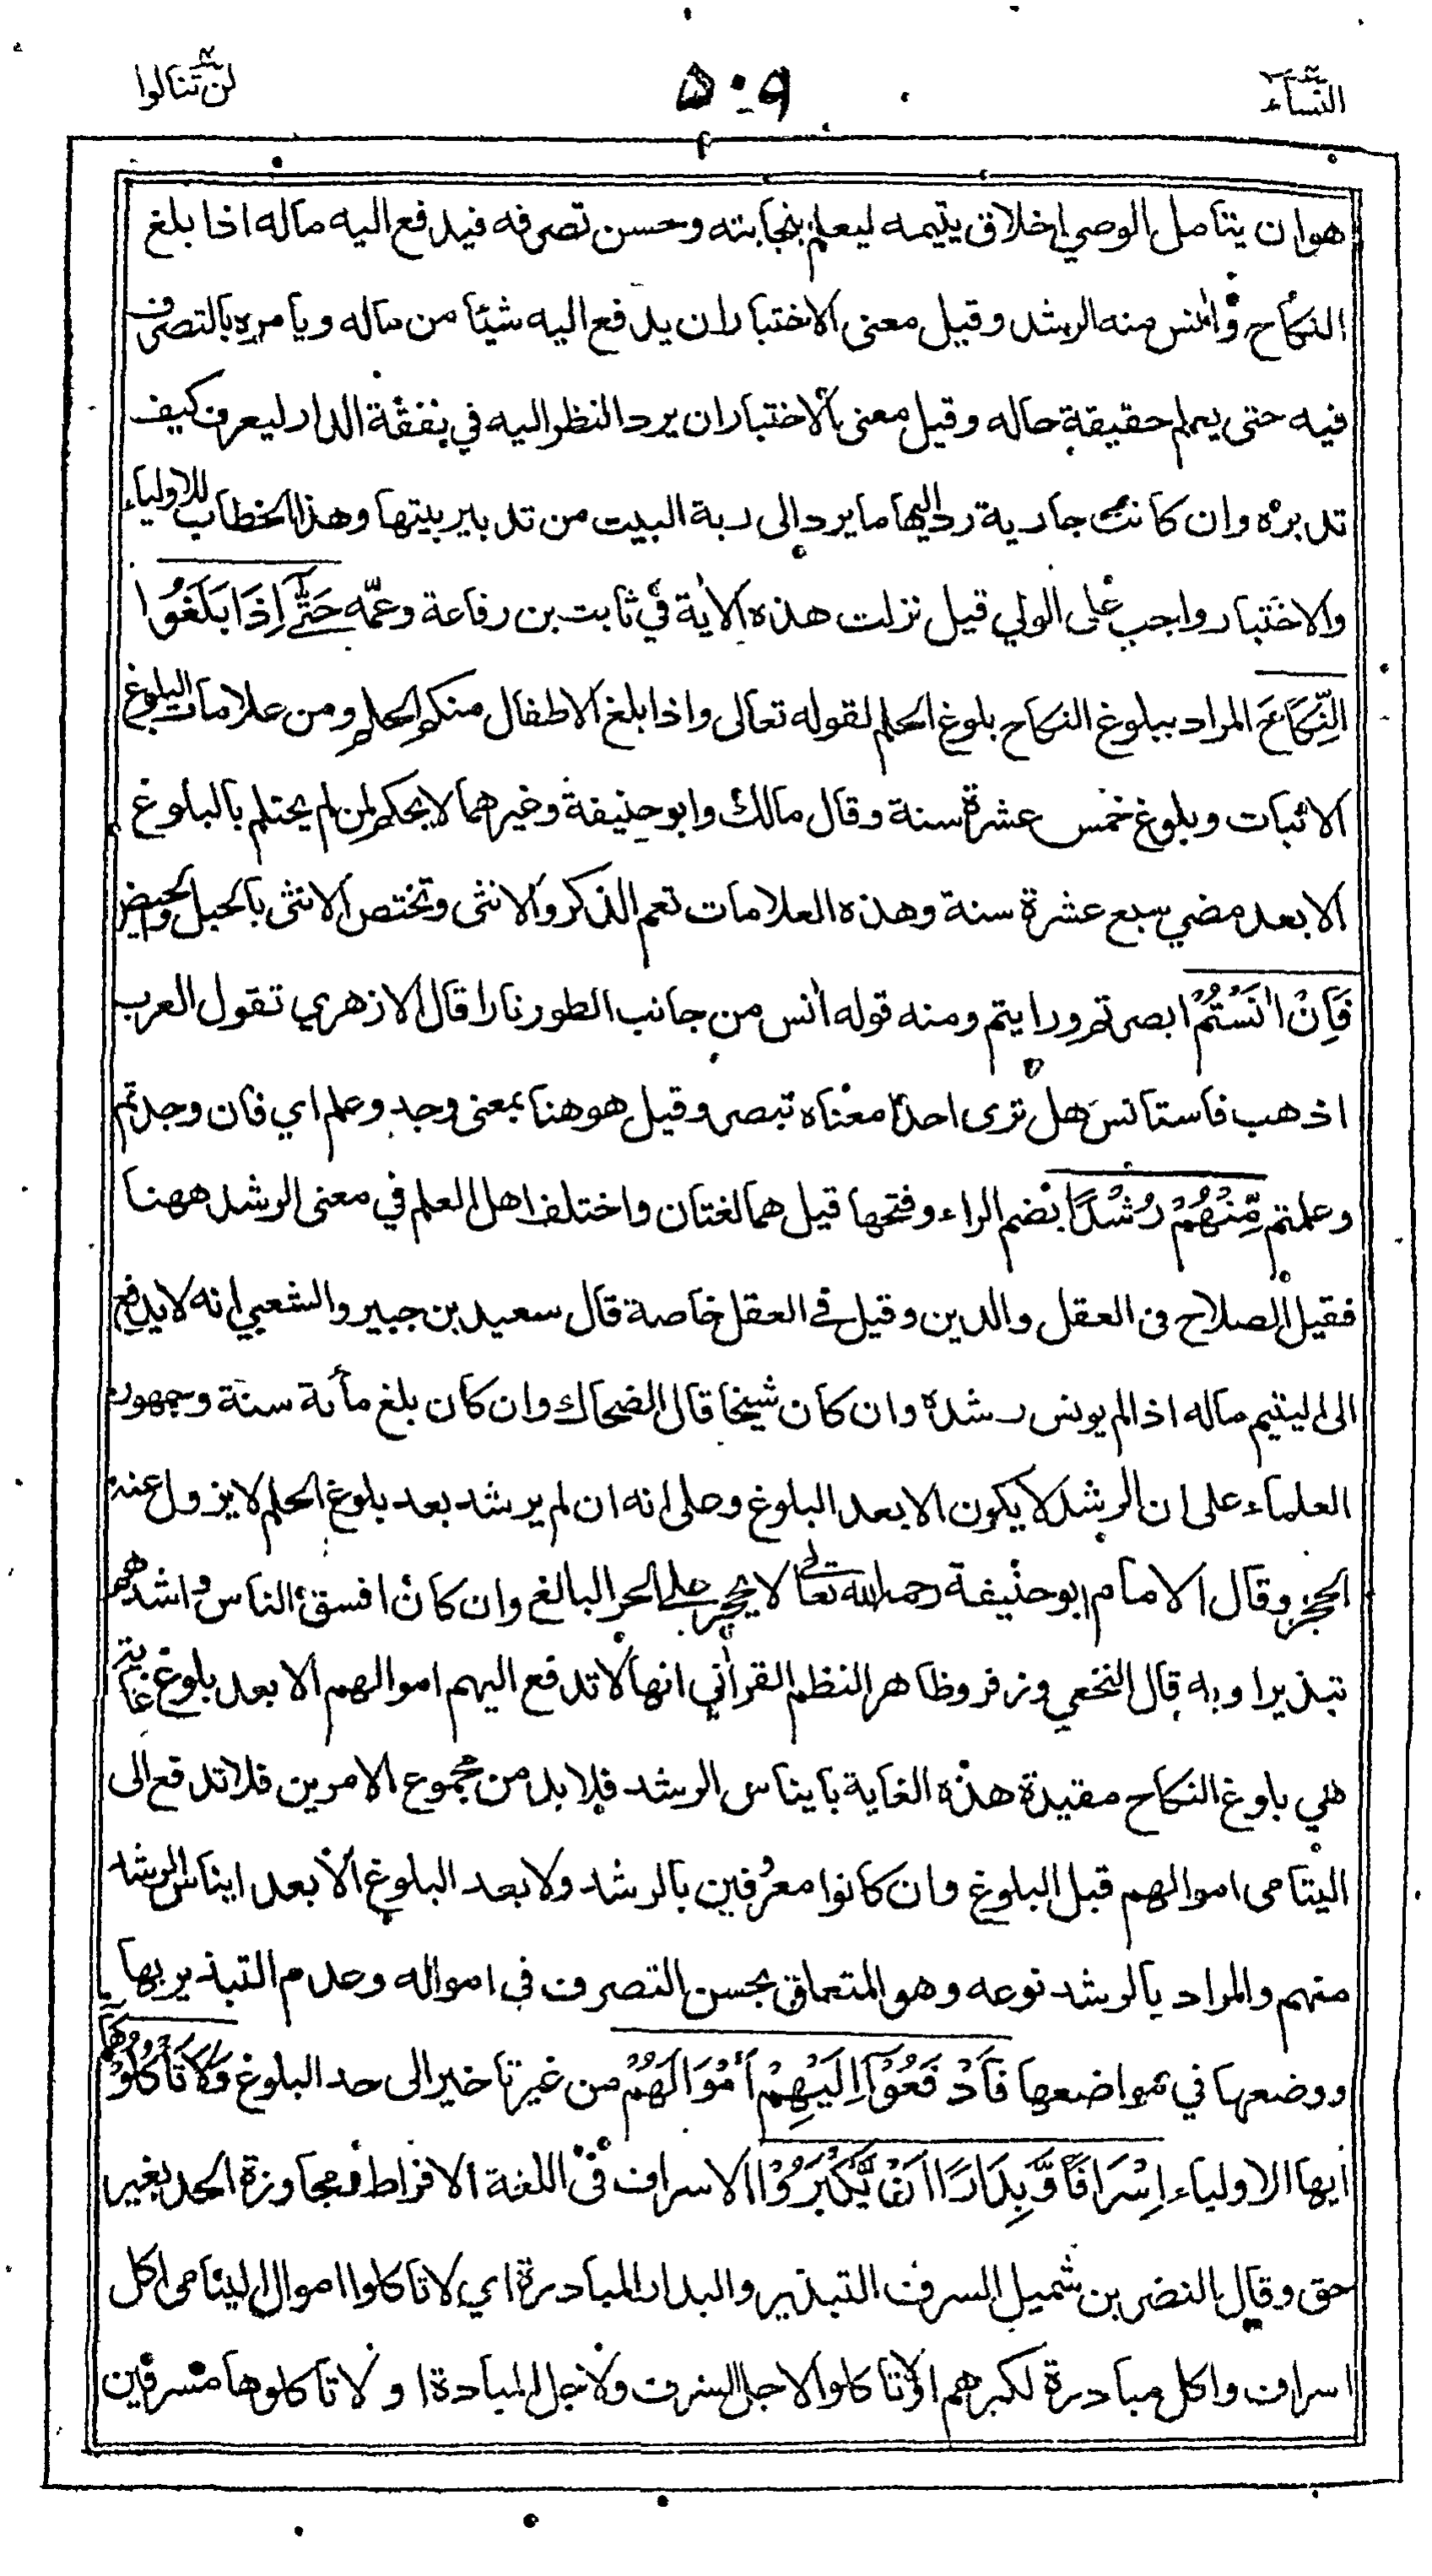 النساء
٥٠٩
لن تنالوا
هو ان يتامل الوصي اخلاق يتيمه ليعلم بنجابته وحسن تصرفه فيدفع اليه ماله اذا بلغ
النكاح واٰنس منه الرشد وقيل معنى الاختبار ان يدفع اليه شيئا من ماله ويامره بالتصرف
فيه حتى يعلم حقيقة حاله وقيل معنى الاختبار ان يرد النظر اليه في نفقة الدار ليعرف كيف
تدبره وان كانت جارية رد اليها ما يرد الى ربة البيت من تدبير بيتها وهذا الخطاب للاولياء
والاختبار واجب على الولي قيل نزلت هذه الاٰية في ثابت بن رفاعة وعمّه حَتّٰٓى اِذَا بَلَغُوا
النِّكَاحَ المراد ببلوغ النكاح بلوغ الحلم لقوله تعالى واذا بلغ الاطفال منكم الحلم ومن علامات البلوغ
الانبات وبلوغ خمس عشرة سنة وقال مالك وابو حنيفة وغيرهما لا يحكم لمن لم يحتلم بالبلوغ
الا بعد مضي سبع عشرة سنة وهذه العلامات تعم الذكر والانثى وتختص الانثى بالحبل والحيض
فَاِنْ اٰنَسْتُمْ ابصرتم ورايتم ومنه قوله اٰنس من جانب الطور نارا قال الازهري تقول العرب
اذهب فاستانس هل ترى احدًا معناه تبصر وقيل هو هنا بمعنى وجد وعلم اي فان وجدتم
وعلمتم مِّنْهُمْ رُشْدًا بضم الراء وفتحها قيل هما لغتان واختلف اهل العلم في معنى الرشد ههنا
فقيل الصلاح فى العقل والدين وقيل في العقل خاصة قال سعيد بن جبير والشعبي انه لا يدفع
الى اليتيم ماله اذا لم يونس رشده وان كان شيخا قال الضحاك وان كان بلغ مأىة سنة وجمهور
العلماء على ان الرشد لا يكون الا بعد البلوغ وعلى انه ان لم يرشد بعد بلوغ الحلم لا يزول عنه
الحجر وقال الامام ابو حنيفة رحمه الله تعالى لا يحجر على الحر البالغ وان كان افسق الناس واشدهم
تبذيرا وبه قال النخعي وزفر وظاهر النظم القراٰني انها لا تدفع اليهم اموالهم الا بعد بلوغ غاية
هي بلوغ النكاح مقيدة هذه الغاية بايناس الرشد فلا بد من مجموع الامرين فلا تدفع الى
اليتامى اموالهم قبل البلوغ وان كانوا معرفين بالرشد ولا بعد البلوغ الا بعد ايناس الرشد
منهم والمراد بالرشد نوعه وهو المتعلق بحسن التصرف في امواله وعدم التبذير بها
ووضعها في مواضعها فَادْفَعُوْٓا اِلَيْهِمْ اَمْوَالَهُمْ من غير تاخير الى حد البلوغ وَلَا تَأْكُلُوْهَآ
ايها الاولياء اِسْرَافًا وَّبِدَارًا اَنْ يَّكْبَرُوْا الاسراف في اللغة الافراط ومجاوزة الحد بغير
حق وقال النضر بن شميل السرف التبذير والبدار المبادرة اي لا تاكلوا اموال اليتامى اكل
اسراف واكل مبادرة لكبرهم او لا تاكلوا لاجل السرف ولاجل المبادة او لا تاكلوها مسرفين